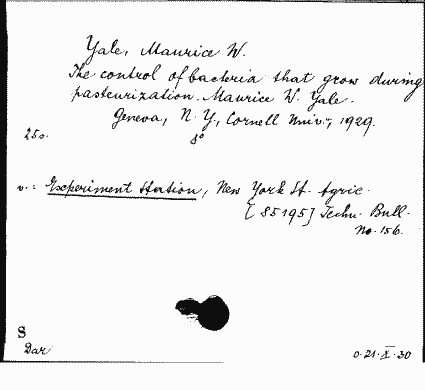 Yale, Maurice W.
The control of bacteria that grow during
pasteurization. Maurice W. Yale.
Geneva, N. Y., Cornell Univ., 1929.
25o. 8°
v.: Experiment Station, New York St. Agric.
[85195] Techn. Bull.
No. 156.
S
Dar
0.21.X.30